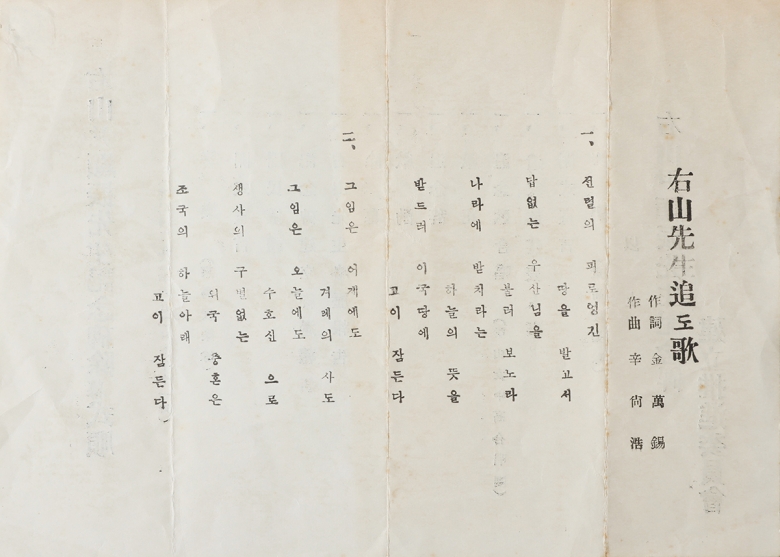 右山先生追도歌
作詞 金萬錫
作曲 辛尙浩
一、 선렬의 피로엉킨
땅을 발고서
답없는 우산님을
불러 보노라
나라에 받치라는
하늘의 뜻을
받드러 이국땅에
고이 잠든다
二、 그임은 어제에도
겨레의 사도
그임은 오늘에도
수호신 으로
생사의 구별없는
위국 충혼은
조국의 하늘아래
고이 잠든다